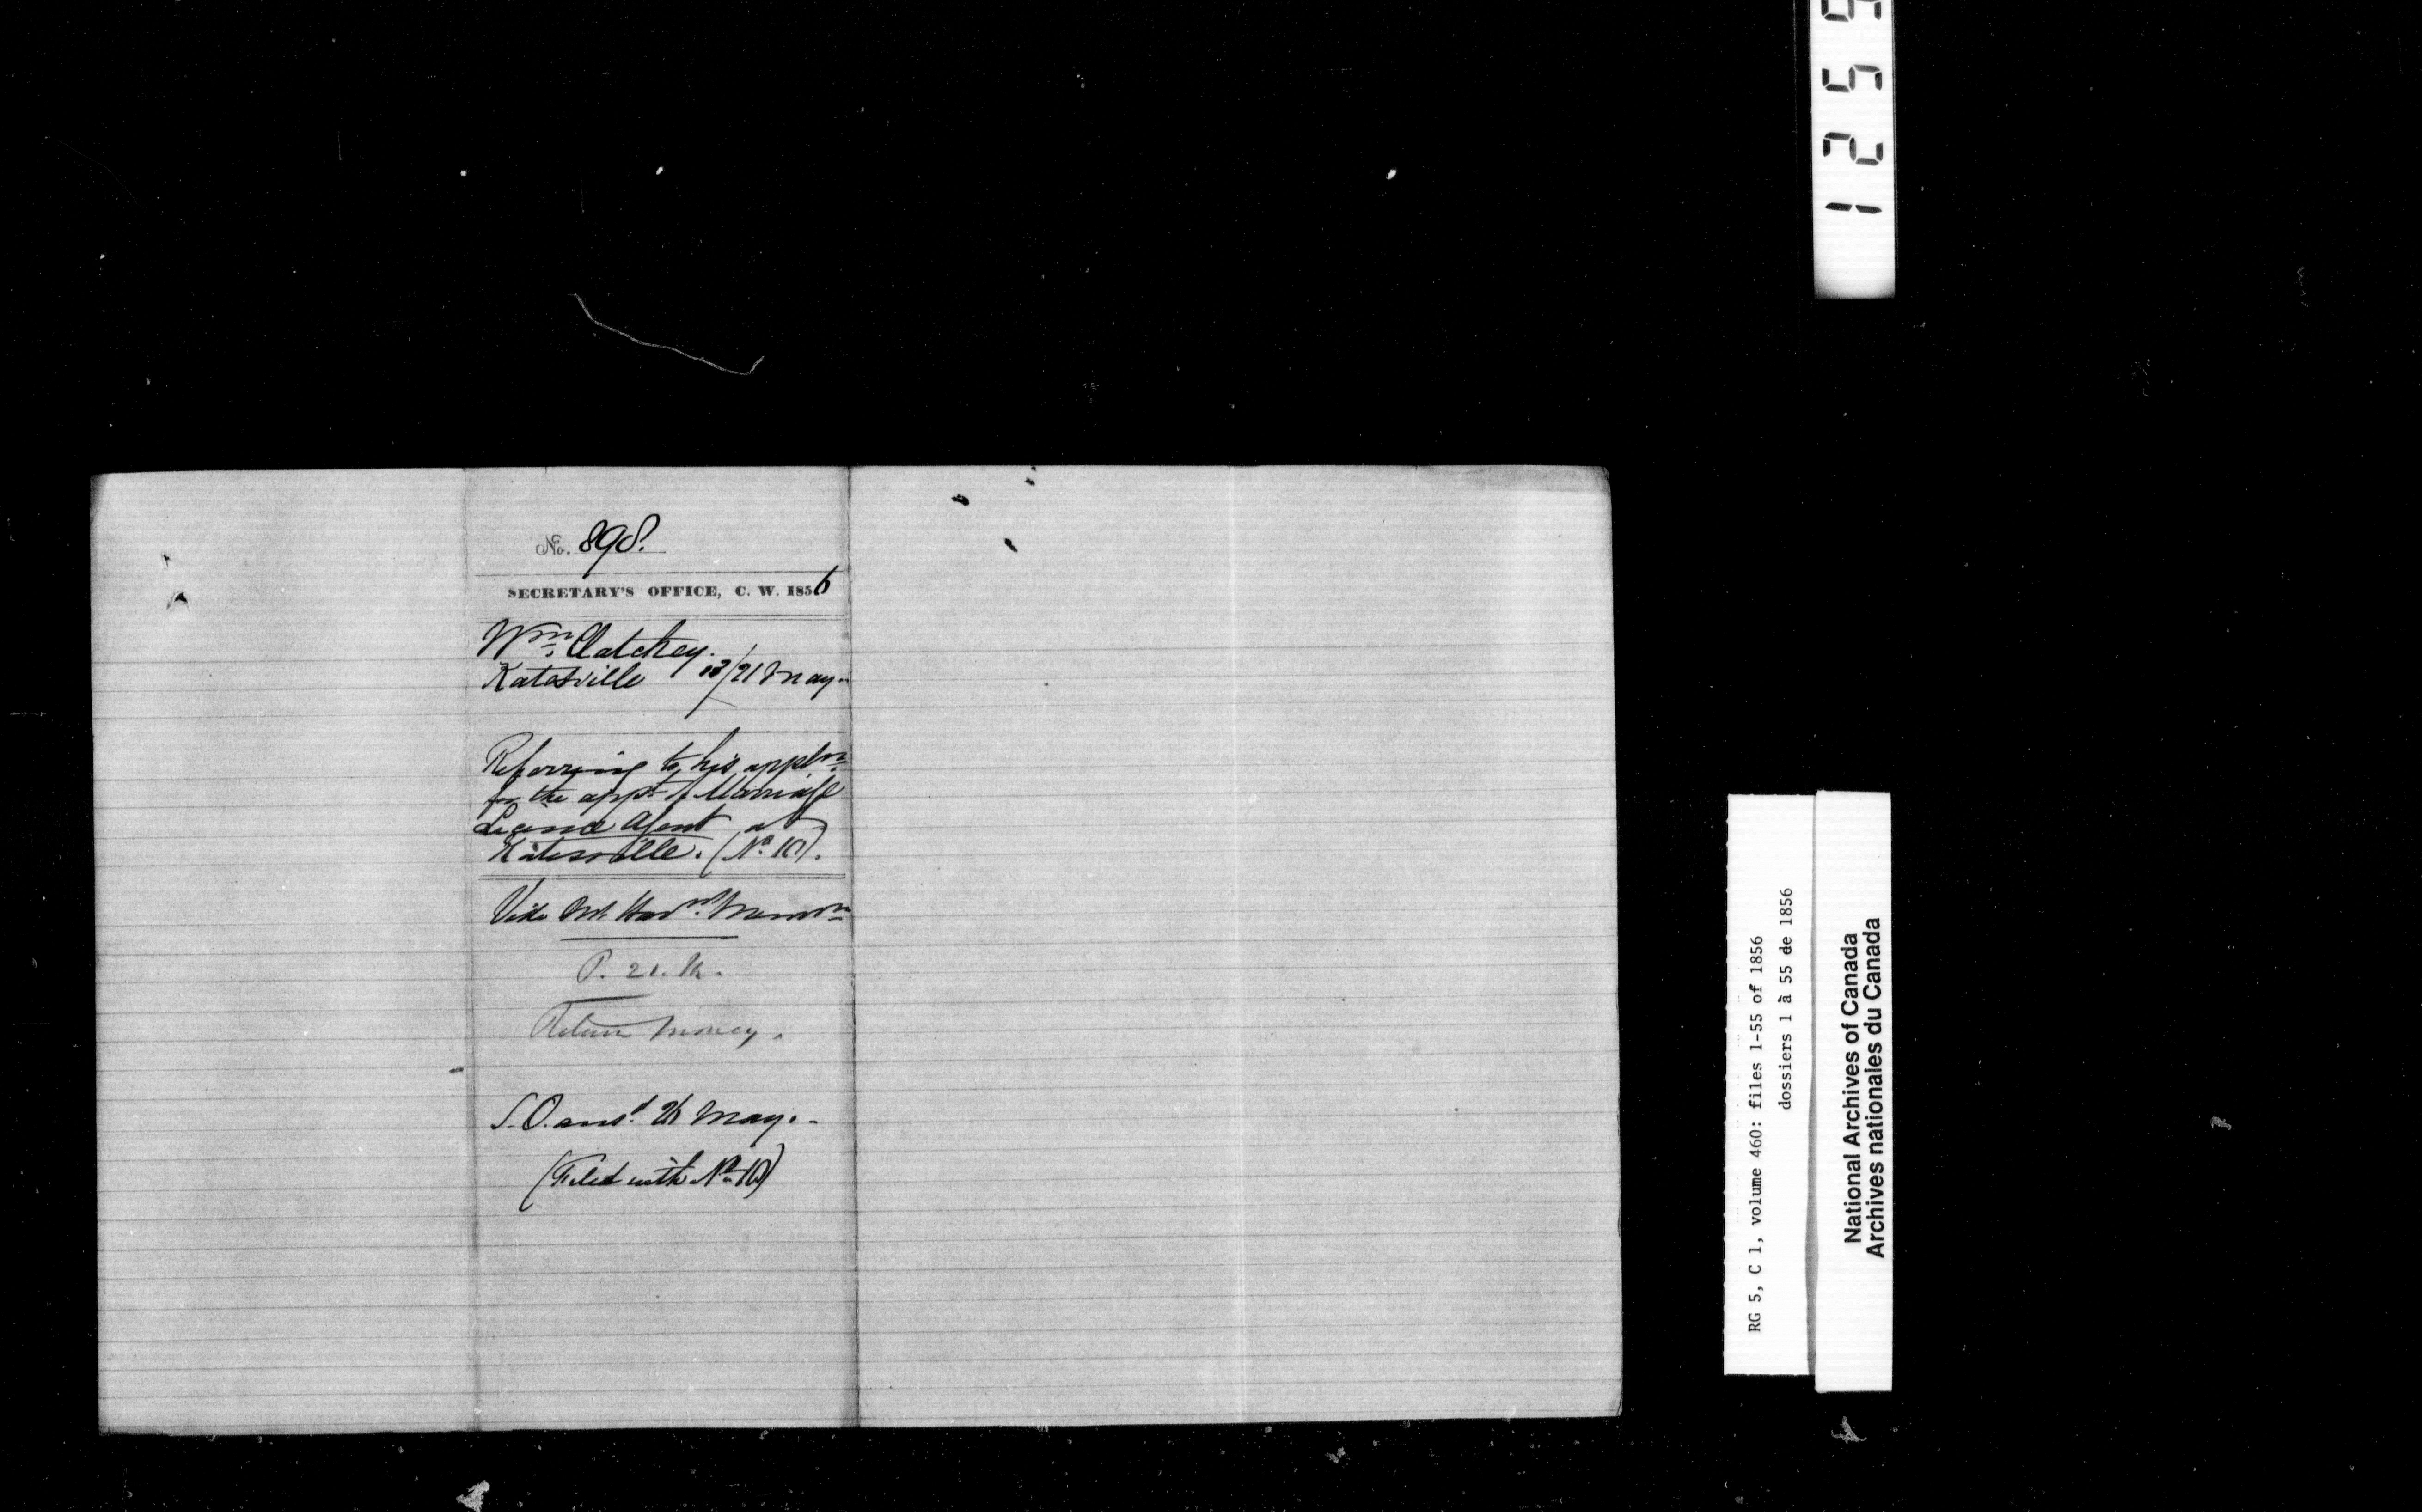 No. 898.
SECRETARY'S OFFICE, C. W. 1856
Wm Clatchey.
Katesville 13/21 May.
Referring to his appln
for the appt of Marriage
Licence Agent at
Katesville. (No. 10).
Vide
P. 21. M.
Return money.
S.O. ansd 26 May.
(Filed with No 10)
1 2 5 9
RG 5, C 1, volume 460: files 1-55 of 1856
dossiers 1 à 55 de 1856
National Archives of Canada
Archives nationales du Canada